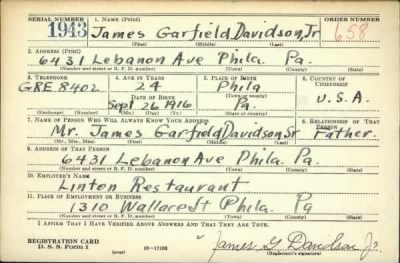 SERIAL NUMBER 1. NAME (Print) ORDER NUMBER
1943 James Garfield Davidson, Jr 658
(First) (Middle) (Last)
2. ADDRESS (Print)
6431 Lebanon Ave Phila. Pa.
(Number and street or R. F. D. number) (Town) (County) (State)
3. TELEPHONE 4. AGE IN YEARS 5. PLACE OF BIRTH 6. COUNTRY OF CITIZENSHIP
GRE 8402 24 Phila
DATE OF BIRTH (Town or county)
Sept 26 1916 Pa. U.S.A.
(Exchange) (Number) (Mo.) (Day) (Yr.) (State or country)
7. NAME OF PERSON WHO WILL ALWAYS KNOW YOUR ADDRESS 8. RELATIONSHIP OF THAT PERSON
Mr. James Garfield Davidson, Sr Father.
(Mr., Mrs., Miss) (First) (Middle) (Last)
9. ADDRESS OF THAT PERSON
6431 Lebanon Ave Phila. Pa.
(Number and street or R. F. D. number) (Town) (County) (State)
10. EMPLOYER'S NAME
Linton Restaurant
11. PLACE OF EMPLOYMENT OR BUSINESS
1310 Wallace St Phila. Pa
(Number and street or R. F. D. number) (Town) (County) (State)
I AFFIRM THAT I HAVE VERIFIED ABOVE ANSWERS AND THAT THEY ARE TRUE.
REGISTRATION CARD
D. S. S. Form 1 (over) 16—17105 James G Davidson Jr.
(Registrant's signature)